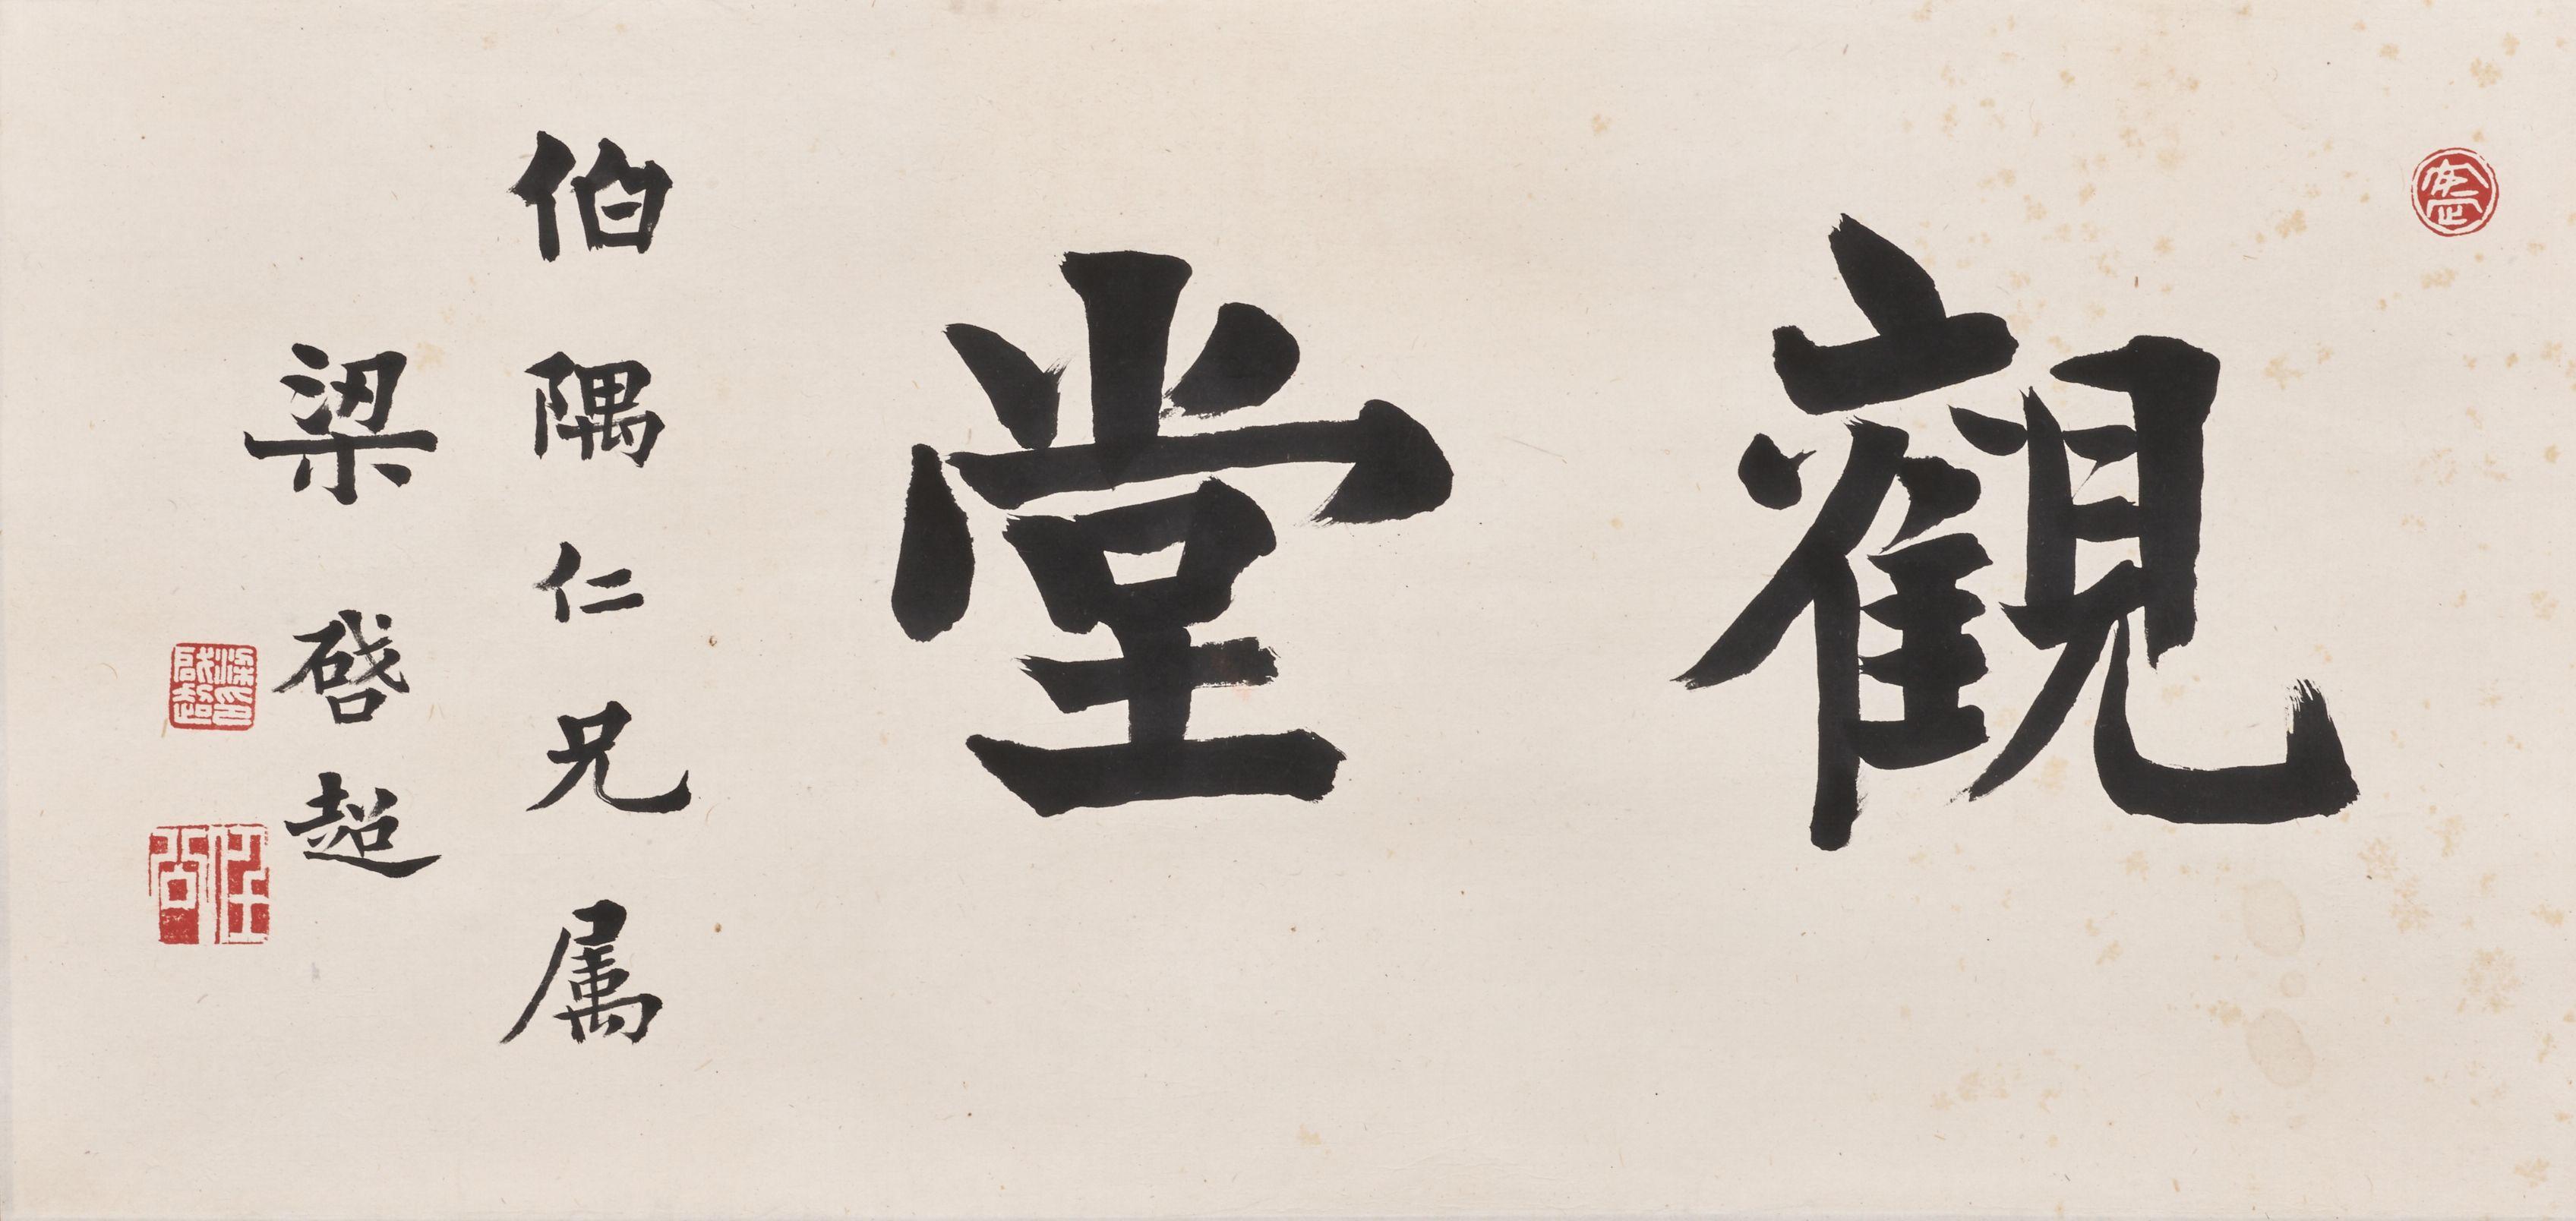 觀堂
伯隅仁兄属
梁啓超
梁啟超印
任公